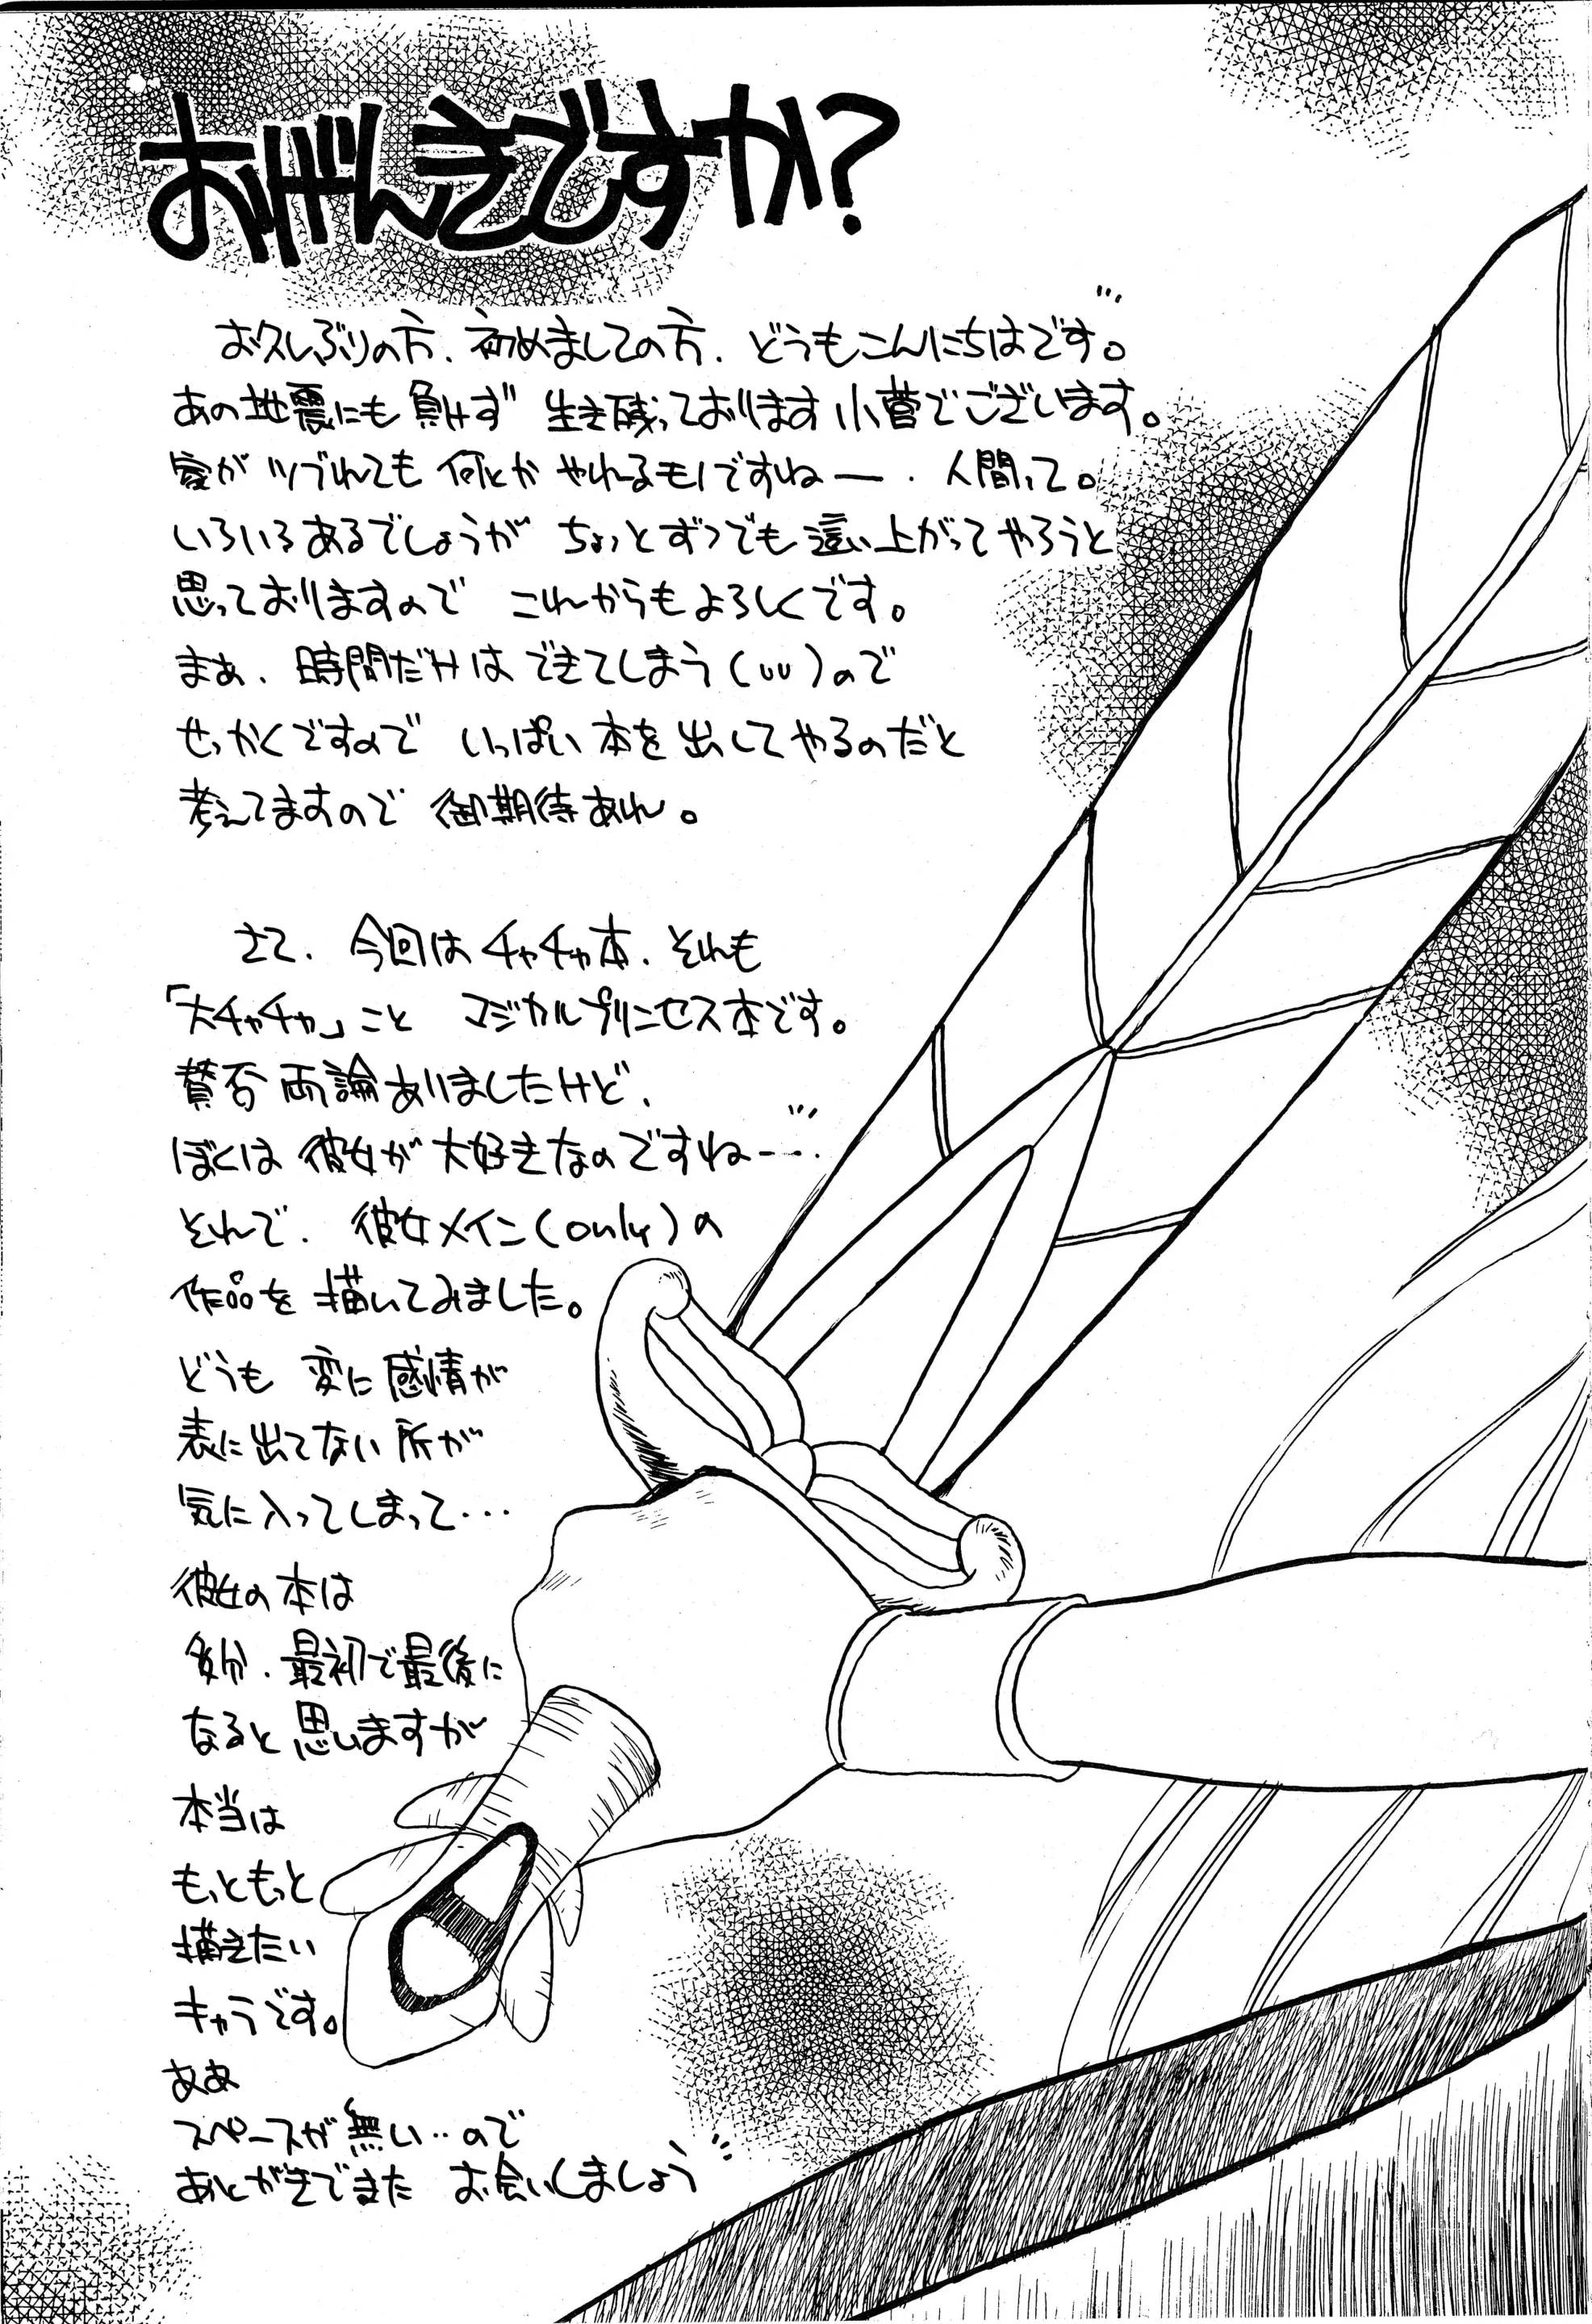 おげんきですか?
お久しぶりの方、初めましての方、どうもこんにちはです。
あの地震にも負けず 生き残っております小菅でございます。
家がツブれても何とかやれるモノですねー、人間って。
いろいろあるでしょうが ちょっとずつでも這い上がってやろうと
思っておりますので これからもよろしくです。
まぁ、時間だけはできてしまう(UU)ので
せっかくですので いっぱい本を出してやるのだと
考えてますので 御期待あれ。
さて、今回はチャチャ本、それも
「大チャチャ」こと マジカルプリンセス本です。
賛否両論ありましたけど、
ぼくは彼女が大好きなのですねー…
それで、彼女メイン(only)の
作品を描いてみました。
どうも変に感情が
表に出てない所が
気に入ってしまって…
彼女の本は
多分、最初で最後に
なると思いますが
本当は
もっともっと
描きたい
キャラです。
ああ
スペースが無い‥ので
あとがきでまた お会いしましょう